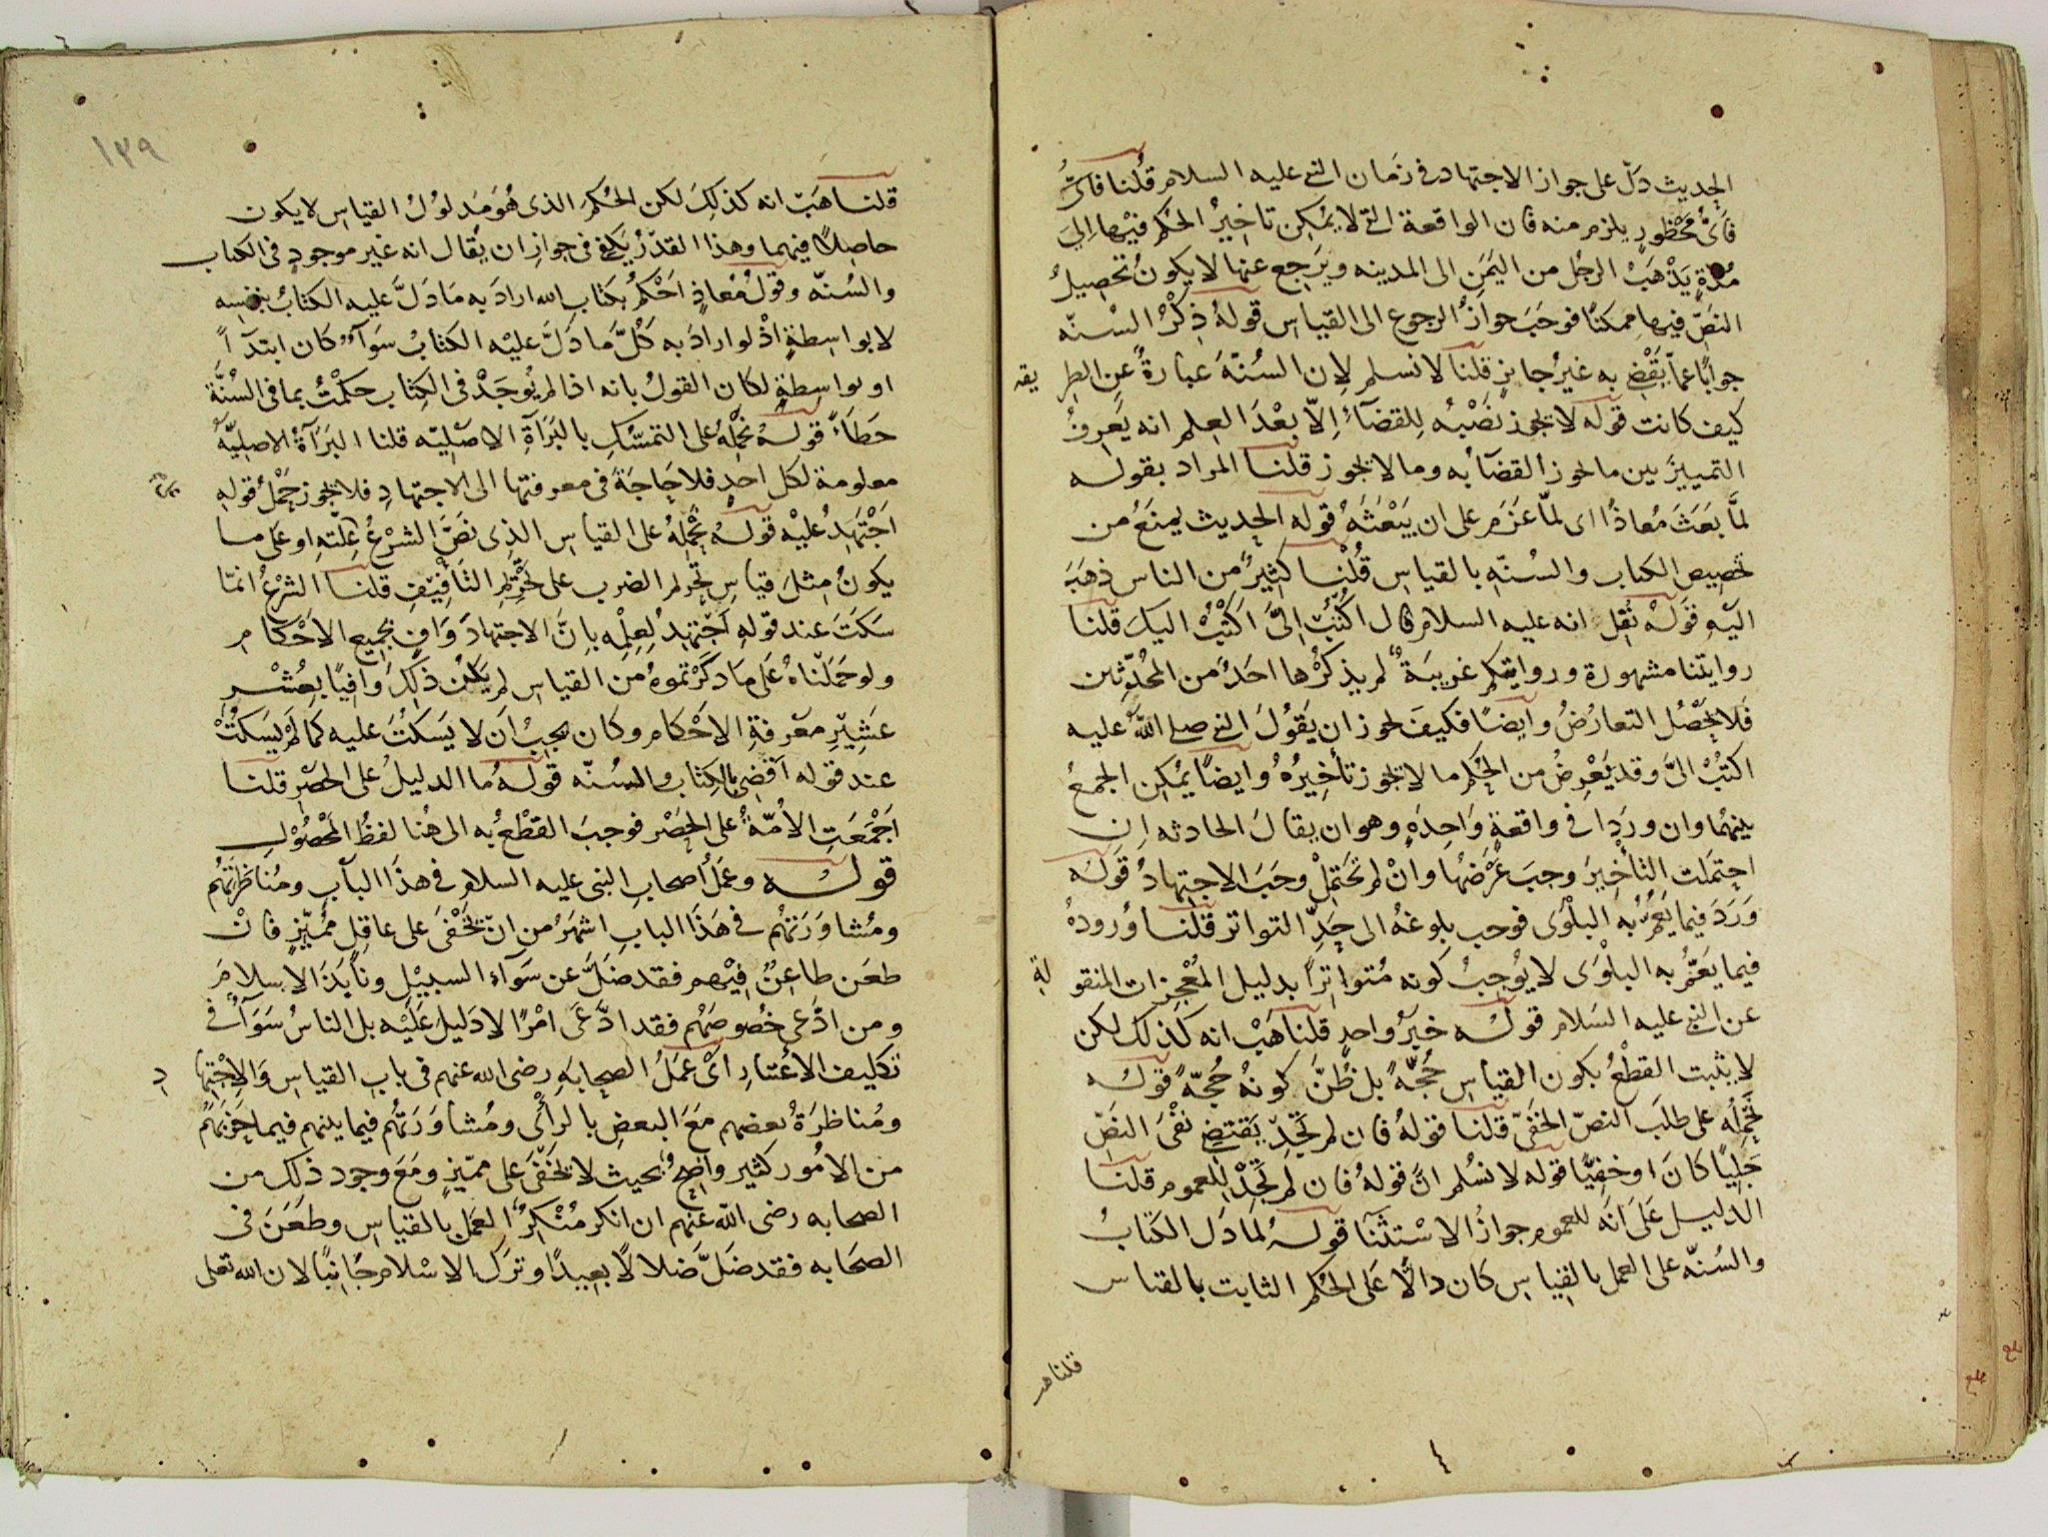 الحديث دلّ على جواز الاجتهاد في زمان النبي عليه السلام قُلنا فَاَىُّ
فَاَىُّ مَحْظُورٍ يلزم منه فان الواقعة التي لا يُمكِن تاخِيرُ الحُكم فيْها اِلىَ
مُدّةٍ يَذْهَبُ الرجُل من اليَمَنِ الى المدينه ويَرجع عنها لا يكونُ تحصِيلُ
النصِّ فيها مُمكنًا فوجَبَ جوازُ الرجوع الى القياس قولهُ ذِكْرُ السُنّه
جوابًا عمّا يَقْضِي به غيرُ جايزٍ قلنا لا نسلم لِان السُنّةَ عبارةٌ عن الطريقه
كيف كانت قوله لا يجوز نَصْبُه لِلقضَآءِ اِلّا بعْدَ العِلم انه يَعرِفُ
التمييزَ بين ما يجوز القضآ به وما لا يجوز قلنا المراد بقوله
لمَّا بَعَثَ مُعاذًا اى لمّا عَزَم على ان يبْعَثَهُ قوله الحديث يمنَعُ من
تخصيص الكتاب والسُنّهِ بالقياس قُلْنا كثِيرٌ من الناس ذهَبَ
اليهِ قولهْ نُقِل انه عليه السلام قال اُكْتُبْ اِلىَّ اَكتُبْ اليك قلنا
روايتنا مشهورة وروايتكم غريبَةٌ لم يذكُرْها احَدٌ من المحُدِّثين
فَلا يَحْصُل التعارُضُ وايضًا فكيف يجوز ان يَقُولَ النبي صلى اللهُ عليه
اكتُبْ الىَّ وقد يَعْرِضُ من الحُكم ما لا يجوز تأخِيرُهُ وايضاً يُمكِن الجمعُ
بينهُما وان ورَدَا في واقعةٍ وَاحِدةٍ وهو ان يقالَ الحادثه اِنِ
احتمَلت التأخِيرَ وجبَ عَرْضُها وانْ لم تحتمِلْ وجَبَ الاجتهادُ قولهُ
وَرَدَ فيما يَعُمُّ به البلْوَى فوجب بلوغهُ الى حَدِّ التواتر قلنا وُرودهُ
فيما يَعُمُّ به البلْوَى لا يُوجبُ كونه مُتواتِرًا بدليل المُعْجزات المنقولةِ
عن النبي عليه السَلام قولهُ خبَرُ واحدٍ قلنا هَبْ انه كذلك لكن
لا يثبت القطْعُ بكون القياس حُجّةً بل ظَنَّ كونهُ حُجّةً قولهُ
نَحْمِلُه على طلَب النصّ الخفَىّ قلنا قولهُ فان لم تَجِدْ يَقتضِي نفْىَ النصِّ
جَلِيًا كانَ او خفِيًّا قوله لا نسُلم انّ قولهُ فان لم تَجِدْ لِلعموم قلنا
الدليل عَلَى انَه للعموم جوازُ الاسْتثنَا قولهُ لما دَلّ الكتابُ
والسُنّه على العمل بالقياس كان دالّاً عَلى الحُكم الثابت بالقياس
قلنا هب
١٣٩
قلنا هَبْ انه كذلِكَ لكن الحُكمَ الذى هُوَ مَدلولُ القياسِ لا يكون
حاصِلًا فيهما وهذا القدْرُ يَكفى فى جوازِ ان يُقال انه غير موجودٍ فى الكتاب
والسُنّه وقولُ مُعاذٍ اَحْكمُ بكتاب الله اراد به مَا دَلَّ عليه الكتابُ بنفسِه
لا بواسِطةٍ اذْ لو ارادَ به كُلَّ مَا دَلَّ عليْه الكتابُ سَوآءٌ كان ابتدَآءً
او بواسِطةٍ لكان القولُ بانه اذا لم يُوجَدْ فى الكِتاب حكمْتُ بما فى السُنَّة
خطَاءً قولهُ نحْمِلهُ على التمسّكِ بالبَرَآةِ الاصْلِيّه قلنا البَرَآةُ الاصلِيّةُ
معلومة لكل احَدٍ فلا حَاجَةَ فى معرفتها الى الاجتهادِ فلا يجوز حَمْلُ قولهِ
اَجْتَهِدُ عليْه قولهُ نَحْمِلهُ على القياسِ الذى نصَّ الشرْعُ عِلّتهِ او على ما
يكونُ مِثلَ قياسِ تحريم الضرب على تحْرِيم التَافِيْفِ قلنا الشرعُ انمّا
سَكَتَ عند قولهِ اَجْتَهِدُ لِعِلْمِه بانَّ الاجتهادَ وَافٍ بجمِيع الاَحْكام
ولو حَمَلْناهُ عَلى مَا ذكَرْتموهُ من القياس لم يَكنْ ذلِكَ وَافِيًا بِعُشْرِ
عَشِيْرِ معَرفةِ الاَحْكام وكان يجبُ اَن لا يَسكُتَ عليه كما لَمْ يَسكُتْ
عند قوله اَقضِى بالكِتاب والسُنّه قولهُ ما الدليلُ على الحَصْرِ قلنا
اَجْمَعَتِ الاُمّةُ على الحَصْر فوجبَ القطْعُ به الى هُنا لفظُ المحْصُوْلِ
قولهُ وعَمَلُ اَصحابِ النبى عليه السلام فى هذَا البابِ ومُناظرَتُهُم
ومُشاوَرَتهُم فى هَذَا البابِ اشهَرُ من اَنْ يَخْفَى على عاقِلٍ مُميّزٍ فانْ
طعَن طاعِنٌ فِيْهم فقد ضَلَّ عن سَوَآءِ السبيْلِ ونابَذَ الاِسلامَ
ومن ادَّعى خُصُوصَهُم فقد ادّعَى امْرًا لا دَليلَ عَليْه بل الناسُ سَوَآءٌ فى
تكليف الاُعتبار اَىْ عَمَلُ الصحابَهِ رضى الله عنهم فى بابِ القياسِ وَالاِجْتِهادِ
ومُناظرَةُ بعضهم مَعَ البعضِ بالرأىِ ومُشاوَرَتُهم فيما بينهم فيما حَزَبَهُمْ
من الامُور كثير واضِحٌ بحيث لا يَخفَى على مميّزٍ ومَعَ وجود ذلك من
الصحابه رضى الله عنهم ان انكر مُنْكِرٌ العمَلَ بالقياس وطعَنَ فى
الصحَابه فقد ضَلَّ ضَلالًا بعيدًا وترَك الاسْلام جَانِبًا لان الله تعلى